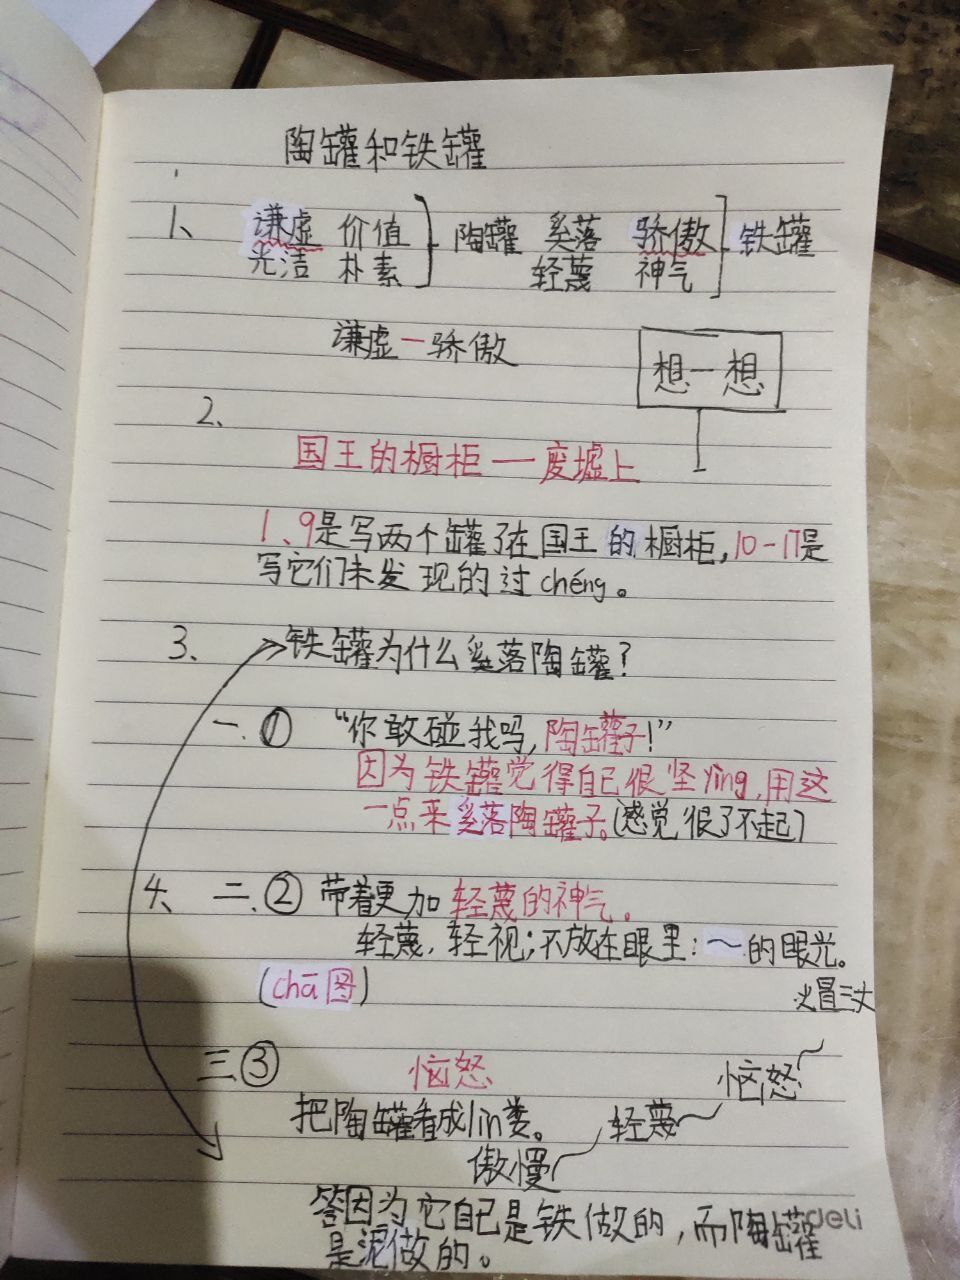 陶罐和铁罐
1、 谦虚 价值 陶罐 奚落 骄傲 铁罐
光洁 朴素 轻蔑 神气
谦虚一骄傲
想一想
2、
国王的橱柜一废墟上
1、9是写两个罐子在国王的橱柜,10-17是
写它们未发现的过chéng。
3、 铁罐为什么奚落陶罐?
一、① “你敢碰我吗,陶罐子!”
因为铁罐觉得自己很坚ying,用这
一点来奚落陶罐子。(感觉很了不起)
4、 二、② 带着更加轻蔑的神气。
轻蔑,轻视;不放在眼里:~的眼光。
(chā图)
火冒三丈
三、③ 恼怒 恼怒
把陶罐看成lin类。 轻蔑
傲慢
答因为它自己是铁做的,而陶罐
是泥做的。
deli